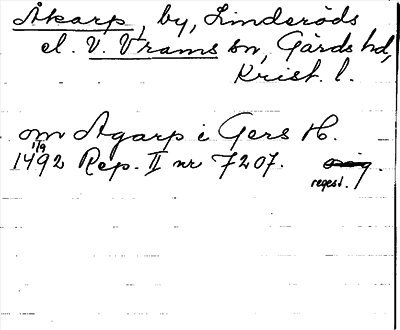 Åkarp, by, Linderöds
el. V. Vrams sn, Gärds hd,
Krist. l.
om Agarp i Gers H.
1/9
1492 Rep. II nr 7207. orig.
regest.